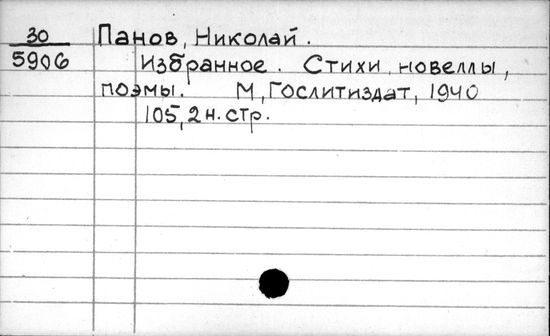 30
5906
Панов, Николай.
Избранное. Стихи, новеллы,
поэмы. М, Гослитиздат, 1940
105, 2 н. стр.